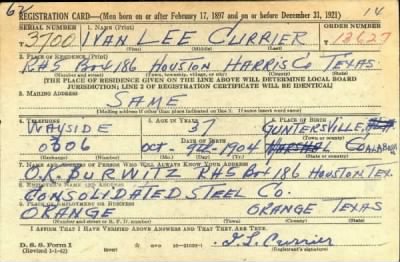 62
14
REGISTRATION CARD—(Men born on or after February 17, 1897 and on or before December 31, 1921)
SERIAL NUMBER 1. NAME (Print) ORDER NUMBER
T 3700 IVAN LEE CURRIER 12627
(First) (Middle) (Last)
2. PLACE OF RESIDENCE (Print)
RH5 Box 186 HOUSTON HARRIS Co TEXAS
(Number and street) (Town, township, village, or city) (County) (State)
[THE PLACE OF RESIDENCE GIVEN ON THE LINE ABOVE WILL DETERMINE LOCAL BOARD
JURISDICTION; LINE 2 OF REGISTRATION CERTIFICATE WILL BE IDENTICAL]
3. MAILING ADDRESS
SAME
[Mailing address if other than place indicated on line 2. If same insert word same]
4. TELEPHONE 5. AGE IN YEARS 6. PLACE OF BIRTH
WAYSIDE 37 GUNTERSVILLE
DATE OF BIRTH
0306 Oct - 9th - 1904 MARSHAL Co ALABAMA
7. NAME AND ADDRESS OF PERSON WHO WILL ALWAYS KNOW YOUR ADDRESS
O.K. BURWITZ RH5 Box 186 HOUSTON TEX.
8. EMPLOYER'S NAME AND ADDRESS
CONSOLIDATED STEEL Co.
9. PLACE OF EMPLOYMENT OR BUSINESS
ORANGE ORANGE TEXAS
(Number and street or R. F. D. number) (Town) (County) (State)
I AFFIRM THAT I HAVE VERIFIED ABOVE ANSWERS AND THAT THEY ARE TRUE.
D. S. S. Form 1
(Revised 1-1-42) (over) 16-21630-1 I. L. Currier
(Registrant's signature)